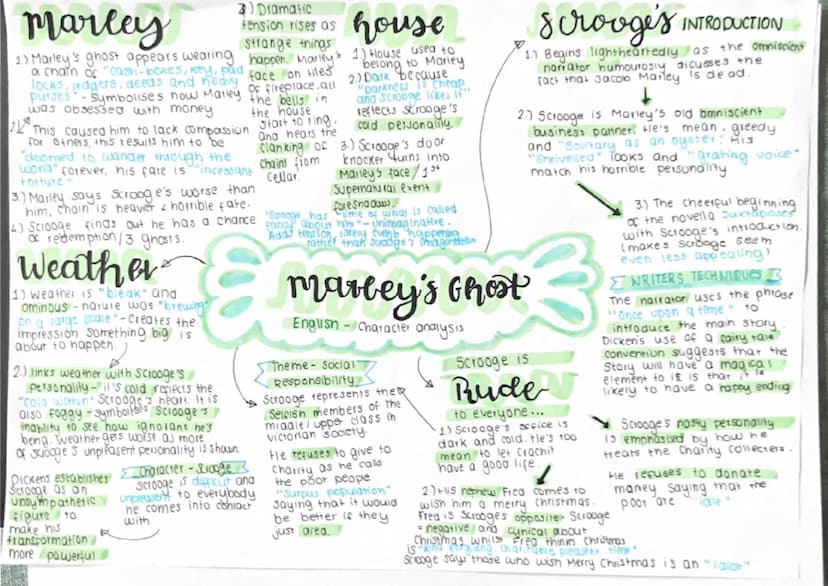 Marley
1.) Marley's ghost appears wearing
a chain of "cash-boxes, key, pad
locks, ledgers, deeds and heavy
purses" - symbolises how Marley
was obsessed with money
2.) This caused him to lack compassion
for others, this results him to be
"doomed to wander through the
world" forever, his fate is "incessant
torture"
3.) Marley says Scrooge's worse than
him, chain is heavier & horrible fate.
4.) Scrooge finds out he has a chance
of redemption/3 ghosts.
Dramatic
tension rises as
strange things
happen. Marley's
face on tiles
of fireplace, all
the bells in
the house
start to ring,
and hears the
clanking of
chains from
cellar.
house
1.) House used to
belong to Marley
2.) Dark because
"Darkness is cheap
and Scrooge likes it"
reflects Scrooge's
cold personality.
3.) Scrooge's door
knocker turns into
Marley's face / 1st
supernatural event
foreshadows
"Scrooge has "little of what is called
fancy about him" - unimaginative.
Adds tension, likely events happening
rather than Scrooge's imagination
Scrooge's INTRODUCTION
1.) Begins lightheartedly as the omniscient
narrator humourously dicusses the
fact that Jacob Marley is dead.
2.) Scrooge is Marley's old omniscient
business partner. He's mean, greedy
and "solitary as an oyster". His
"shrivelled" looks and "grating voice"
match his horrible personality
3.) The cheerful beginning
of the novella juxtaposes
with Scrooge's introduction.
(makes Scrooge seem
even less appealing)
WRITERS TECHNIQUES
The narrator uses the phrase
"once upon a time" to
introduce the main story.
Dicken's use of a fairy tale
convention suggests that the
story will have a magical
element to it & that it is
likely to have a happy ending
Scrooge's nasty personality
is emphasised by how he
treats the Charity Collecters.
He refuses to donate
money saying that the
poor are "idle"
Marley's Ghost
English - Character analysis
Weather
1.) Weather is "bleak" and
ominous - nature was "brewing
on a large scale" - Creates the
impression something big is
about to happen.
2.) links weather with Scrooge's
personality - it's cold reflects the
"cold within" Scrooge's heart. It is
also foggy - symbolises Scrooge's
inability to see how ignorant he's
being. Weather gets worst as more
of Scrooge's unpleasent personality is shown
Dickens establishes
Scrooge as an
unsympathetic
figure to
make his
transformation
more powerful
Character - Scrooge
Scrooge is difficult and
unpleasent to everybody
he comes into contact
with
Theme - Social
Responsibility
Scrooge represents the
selfish members of the
middle/upper class in
Victorian society.
He refuses to give to
charity as he calls
the poor people
"surplus population"
saying that it would
be better if they
just died.
Scrooge is
Rude
to everyone...
1.) Scrooge's office is
dark and cold. He's too
mean to let Crachit
have a good life.
2.) His nephew Fred comes to
wish him a merry Christmas.
Fred is Scrooge's opposite. Scrooge
= negative and cynical about
Christmas whilst Fred thinks Christmas
is "kind, forgiving, charitable, pleasant time"
Scrooge says those who wish Merry Christmas is an "idiot"